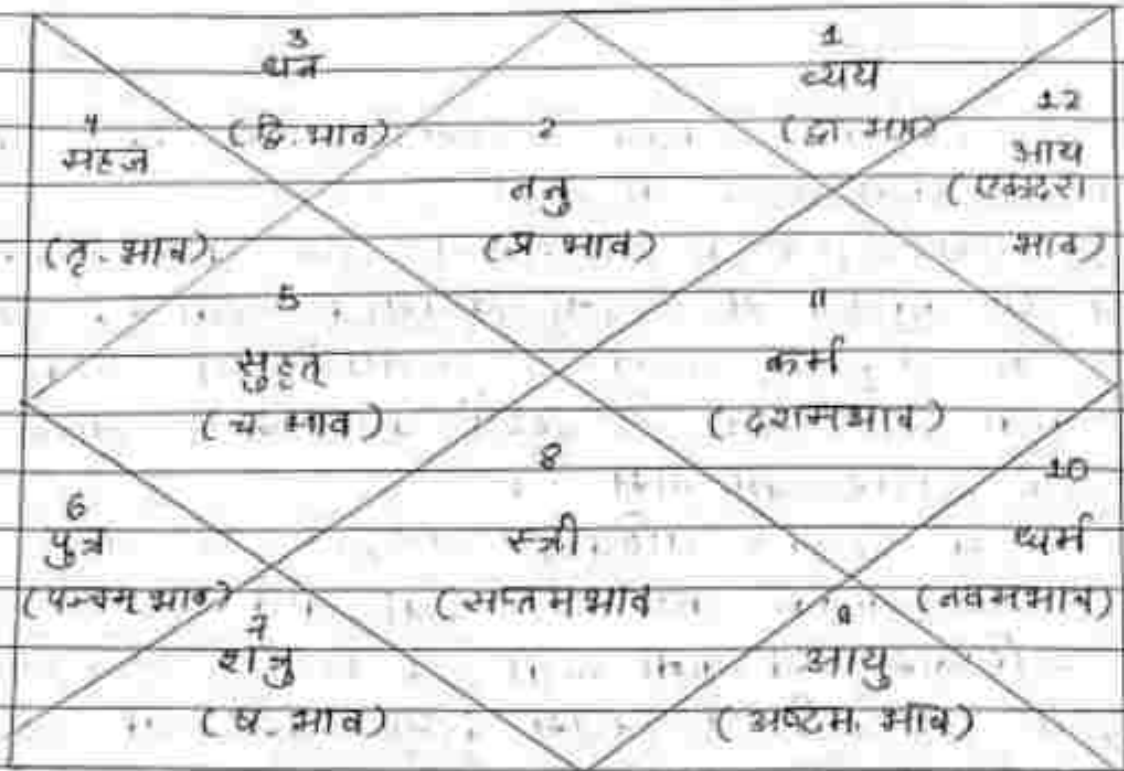 3
धन
(द्वि. भाव)
1
व्यय
(द्वा. भाव)
12
आय
(एकादश
भाव)
4
सहज
(तृ. भाव)
2
तनु
(प्र. भाव)
5
सुहृत्
(च. भाव)
11
कर्म
(दशमभाव)
8
स्त्री
(सप्तमभाव
10
धर्म
(नवमभाव)
6
पुत्र
(पन्चम् भाव)
7
शत्रु
(ष. भाव)
9
आयु
(अष्टम. भाव)